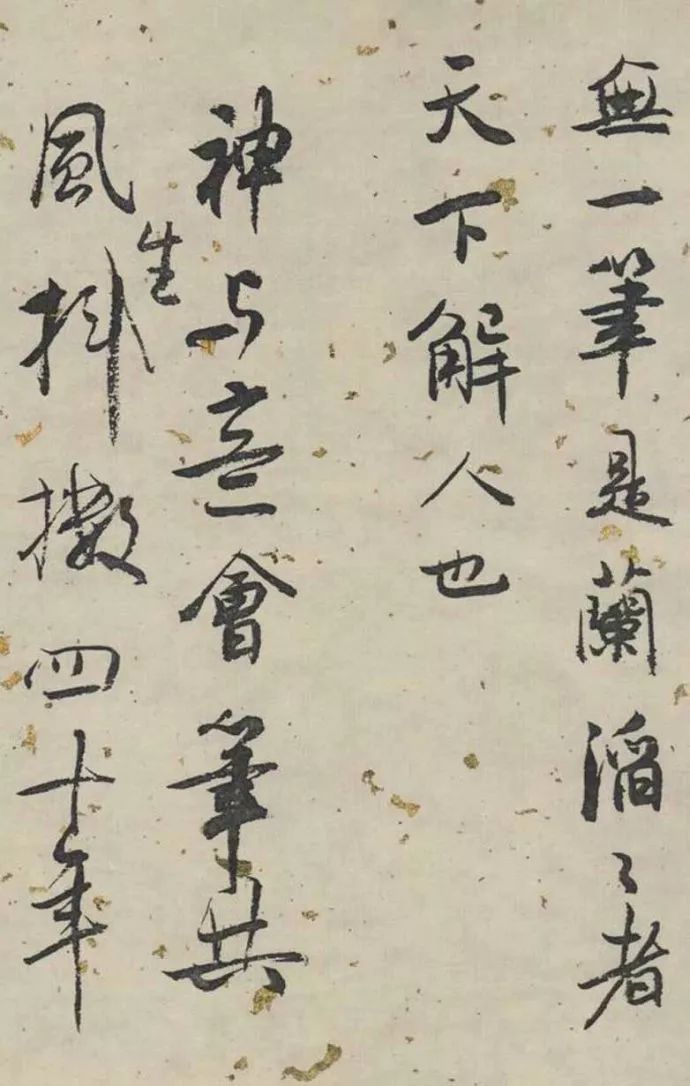 無一筆是蘭滔〻者
天下解人也
神与意會筆共
生
風抖擻四十年